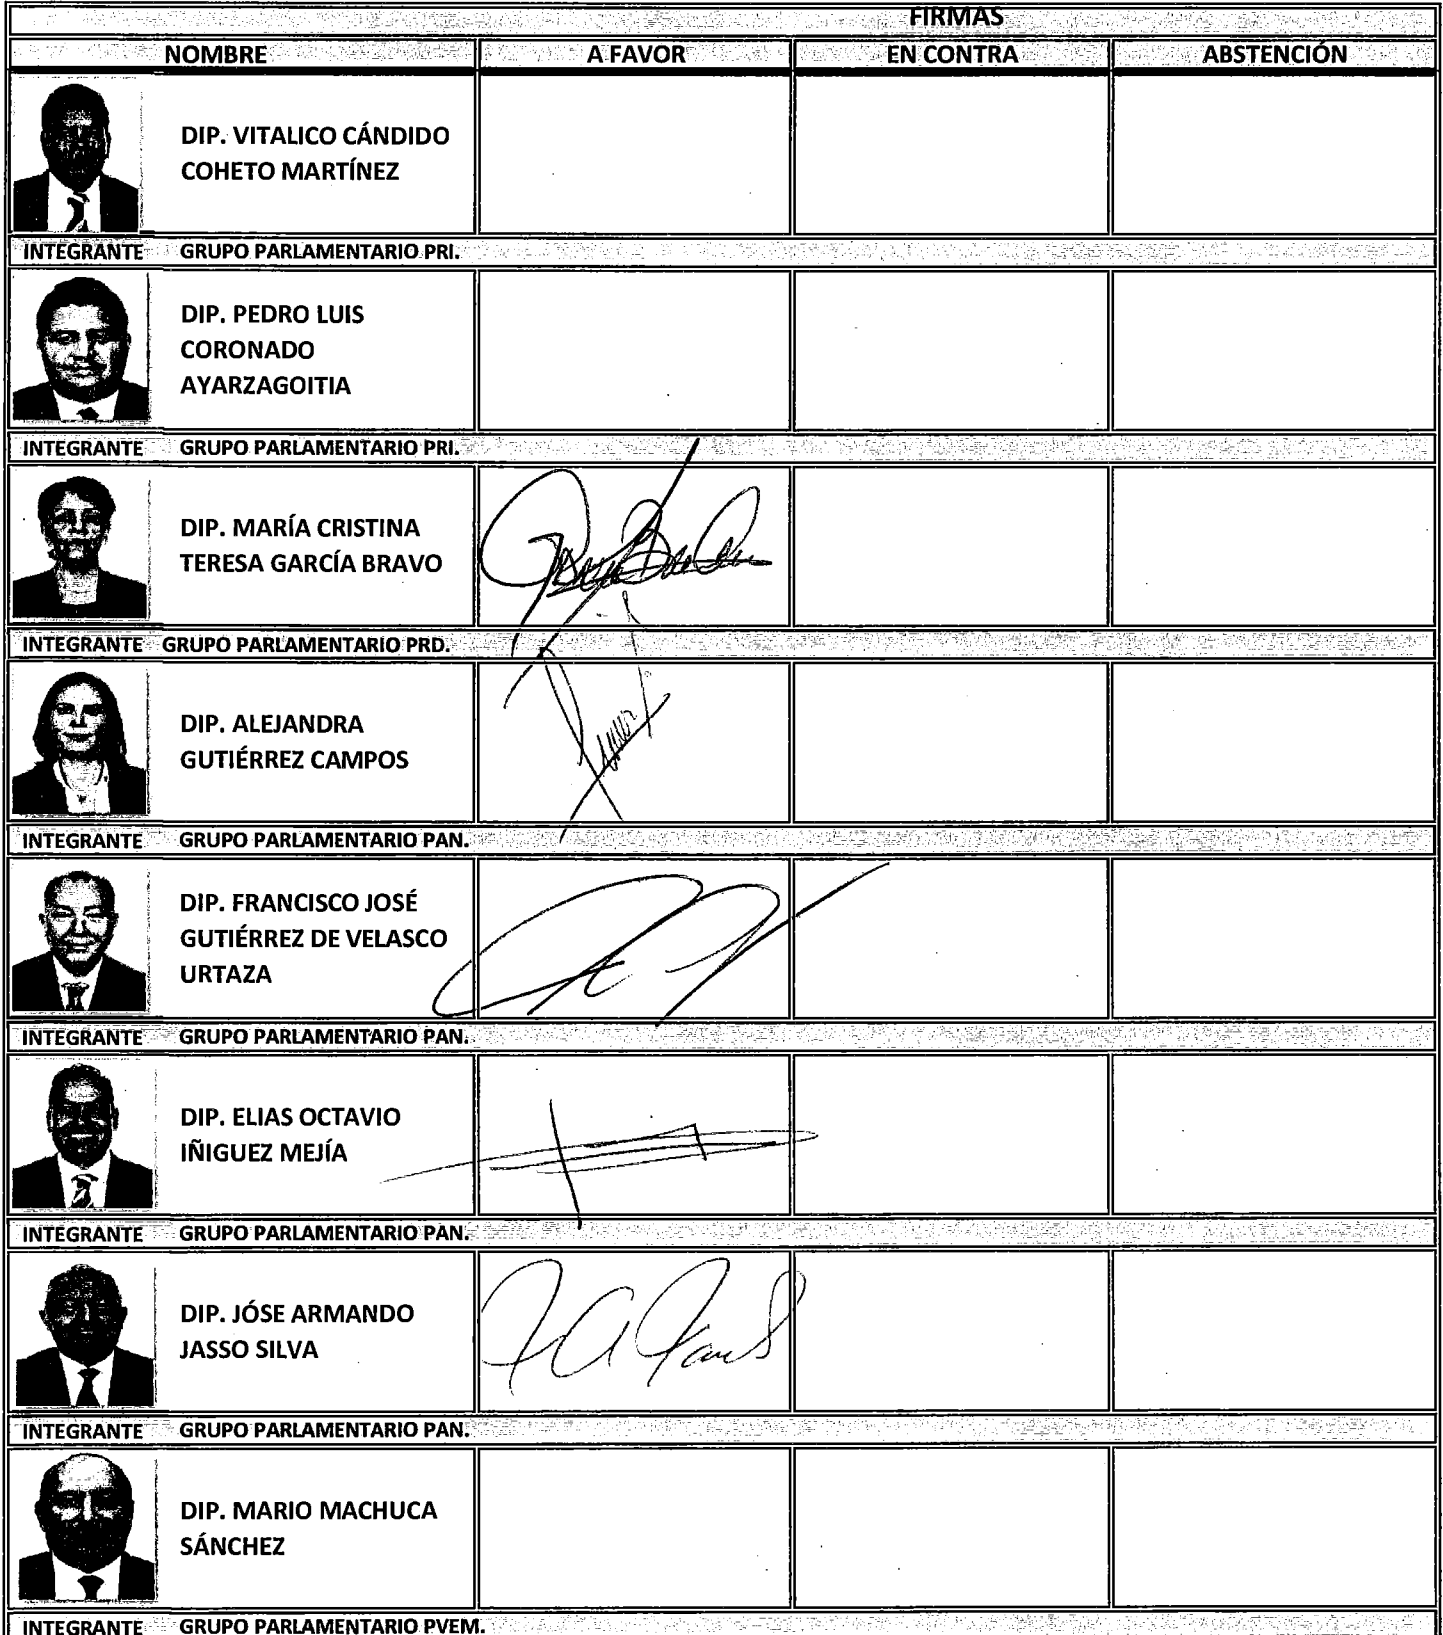 FIRMAS
NOMBRE A FAVOR EN CONTRA ABSTENCIÓN
DIP. VITALICO CÁNDIDO
COHETO MARTÍNEZ
INTEGRANTE GRUPO PARLAMENTARIO PRI.
DIP. PEDRO LUIS
CORONADO
AYARZAGOITIA
INTEGRANTE GRUPO PARLAMENTARIO PRI.
DIP. MARÍA CRISTINA
TERESA GARCÍA BRAVO
INTEGRANTE GRUPO PARLAMENTARIO PRD.
DIP. ALEJANDRA
GUTIÉRREZ CAMPOS
INTEGRANTE GRUPO PARLAMENTARIO PAN.
DIP. FRANCISCO JOSÉ
GUTIÉRREZ DE VELASCO
URTAZA
INTEGRANTE GRUPO PARLAMENTARIO PAN.
DIP. ELIAS OCTAVIO
IÑIGUEZ MEJÍA
INTEGRANTE GRUPO PARLAMENTARIO PAN.
DIP. JÓSE ARMANDO
JASSO SILVA
INTEGRANTE GRUPO PARLAMENTARIO PAN.
DIP. MARIO MACHUCA
SÁNCHEZ
INTEGRANTE GRUPO PARLAMENTARIO PVEM.